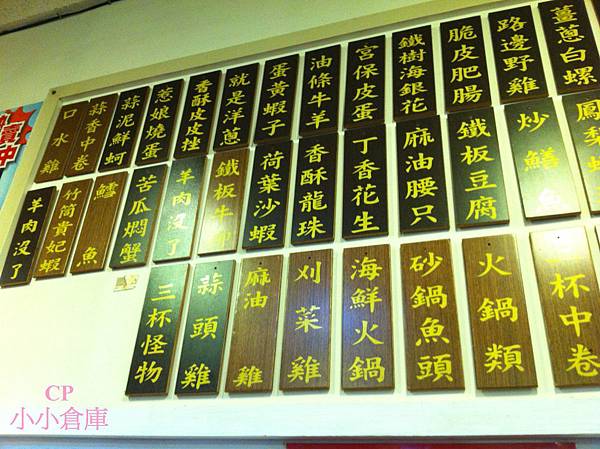 薑蔥白螺
路邊野雞
脆皮肥腸
鐵樹海銀花
宮保皮蛋
油條牛羊
蛋黃蝦子
就是洋蔥
香酥皮皮挫
惹娘燒蛋
蒜泥鮮蚵
蒜香中卷
口水雞
鳳梨蝦
炒鱔魚
鐵板豆腐
麻油腰只
丁香花生
香酥龍珠
荷葉沙蝦
鐵板牛
羊肉沒了
苦瓜燜蟹
鱈魚
竹筒貴妃蝦
羊肉沒了
杯中卷
火鍋類
砂鍋魚頭
海鮮火鍋
刈菜雞
麻油雞
蒜頭雞
三杯怪物
CP
小小倉庫